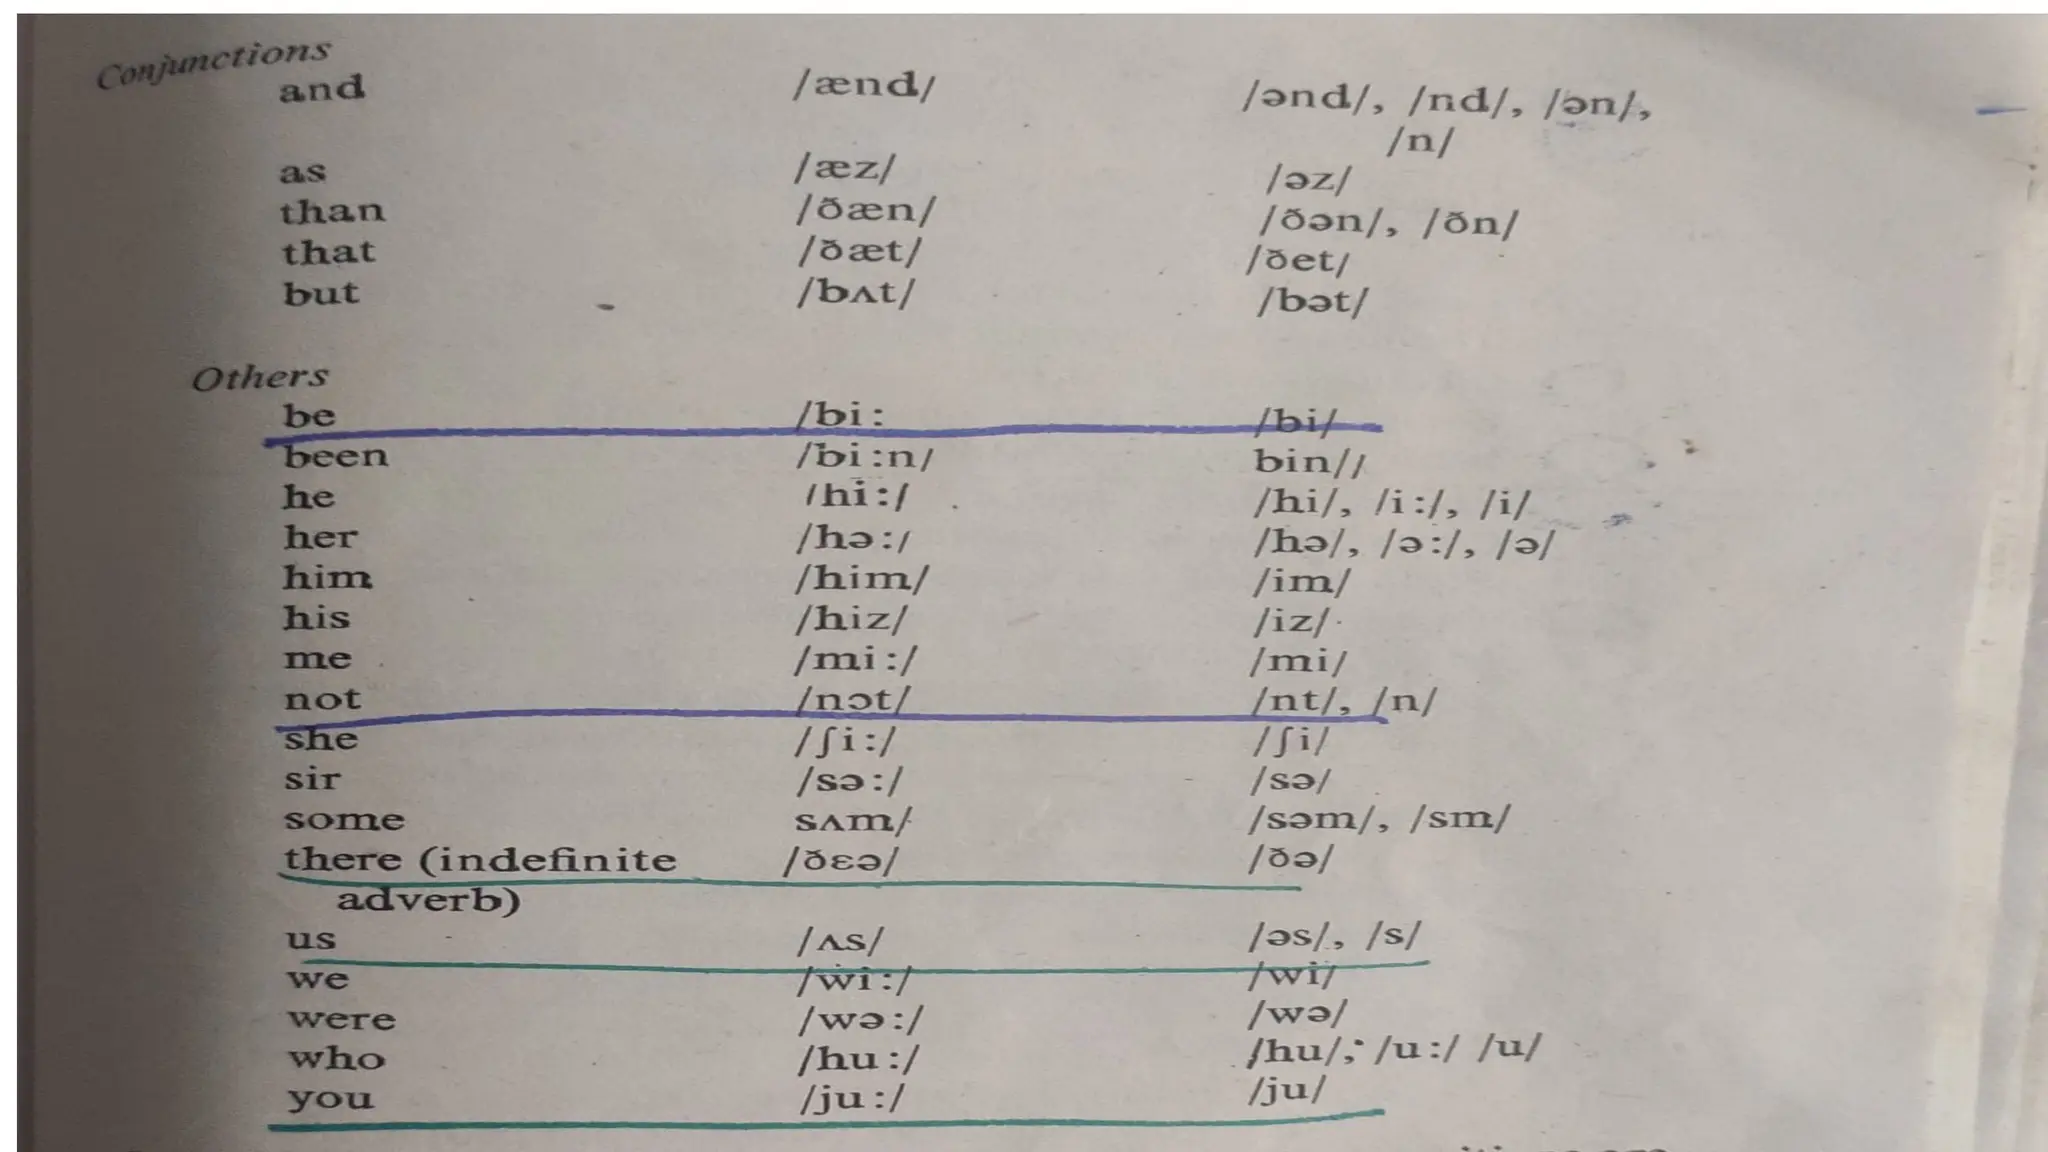 Conjunctions
and /ænd/ /ənd/, /nd/, /ən/,
/n/
as /æz/ /əz/
than /ðæn/ /ðən/, /ðn/
that /ðæt/ /ðet/
but /bʌt/ /bət/
Others
be /bi: /bi/
been /bi:n/ bin//
he /hi:/ /hi/, /i:/, /i/
her /hə:/ /hə/, /ə:/, /ə/
him /him/ /im/
his /hiz/ /iz/
me /mi:/ /mi/
not /nɔt/ /nt/, /n/
she /ʃi:/ /ʃi/
sir /sə:/ /sə/
some sʌm/ /səm/, /sm/
there (indefinite /ðɛə/ /ðə/
adverb)
us /ʌs/ /əs/, /s/
we /wi:/ /wi/
were /wə:/ /wə/
who /hu:/ /hu/, /u:/ /u/
you /ju:/ /ju/